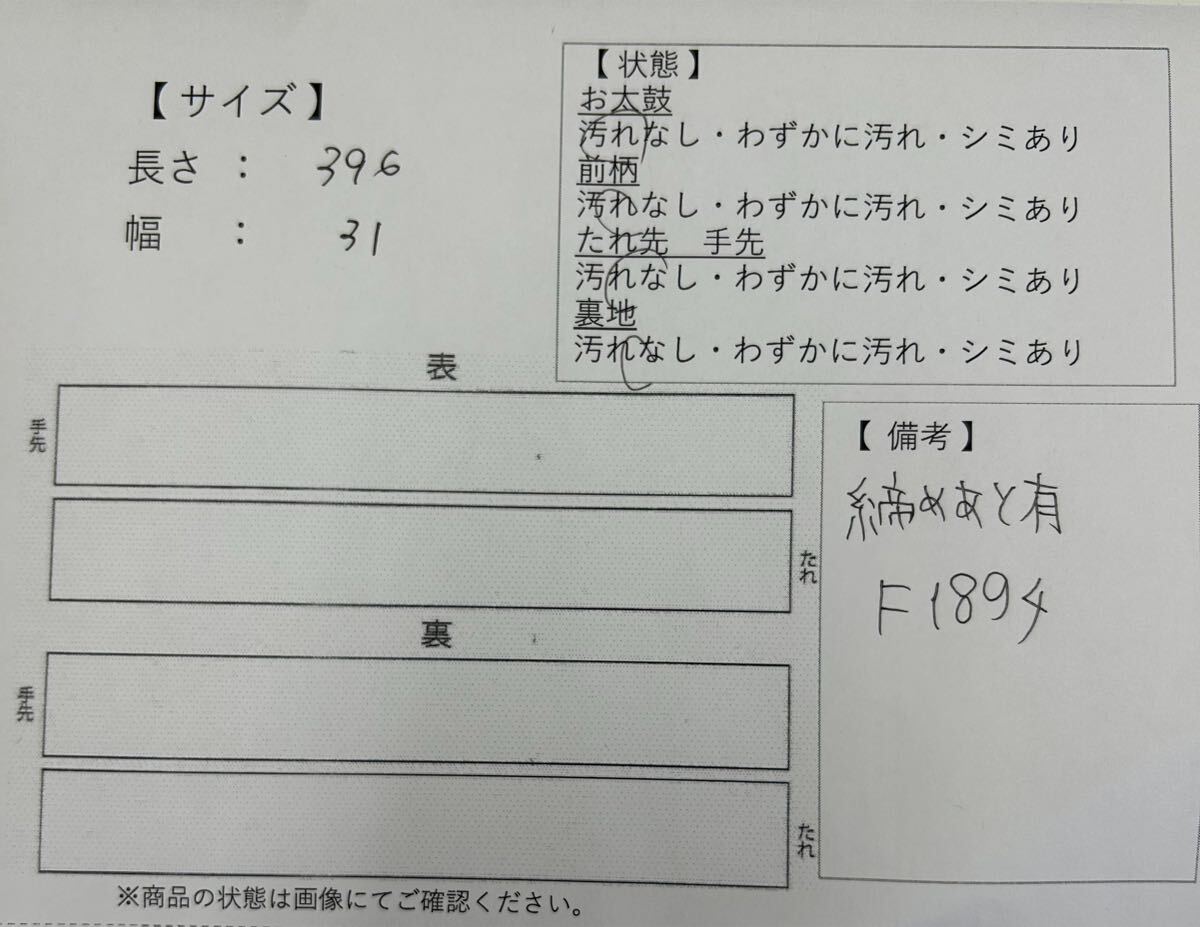 【 サイズ 】
長さ ： 396
幅 ： 31
【 状態 】
お太鼓
汚れなし・わずかに汚れ・シミあり
前柄
汚れなし・わずかに汚れ・シミあり
たれ先 手先
汚れなし・わずかに汚れ・シミあり
裏地
汚れなし・わずかに汚れ・シミあり
表
手先
たれ
裏
手先
たれ
【 備考 】
締めあと有
F1894
※商品の状態は画像にてご確認ください。